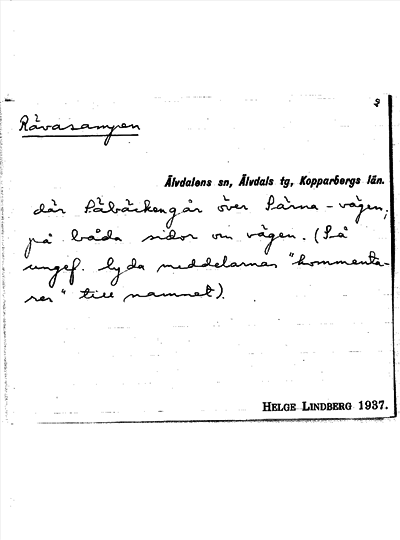 2
Rävasampen
Älvdalens sn, Älvdals tg, Kopparbergs län.
där Påbäcken går över Särna-vägen,
på båda sidor om vägen. (Så
ungef. lyda meddelarnas "kommenta-
rer" till namnet).
HELGE LINDBERG 1937.